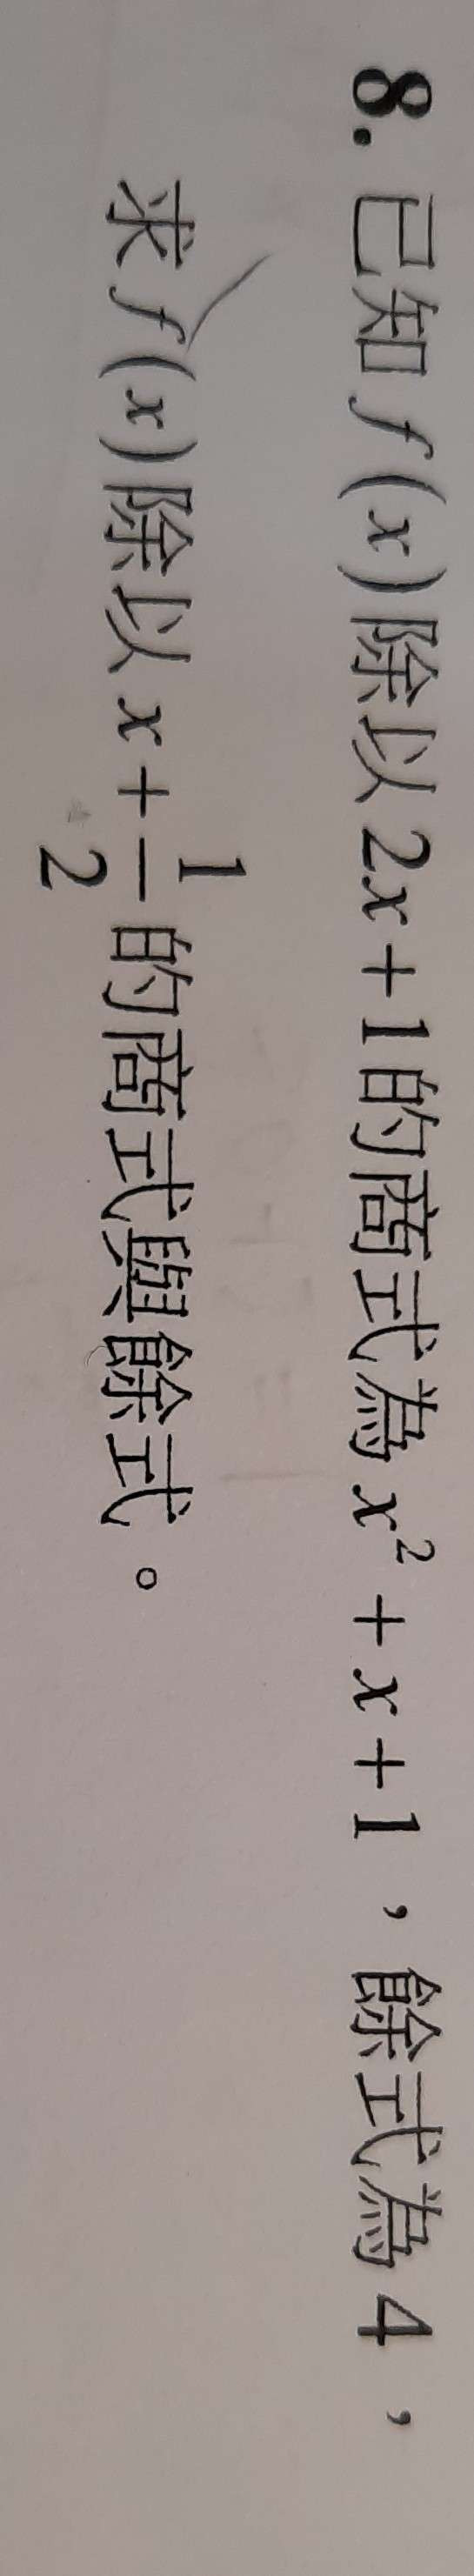 8. 已知 f(x) 除以 2x+1 的商式為 x² + x + 1 ，餘式為 4 ，
求 f(x) 除以 x + 1/2 的商式與餘式。